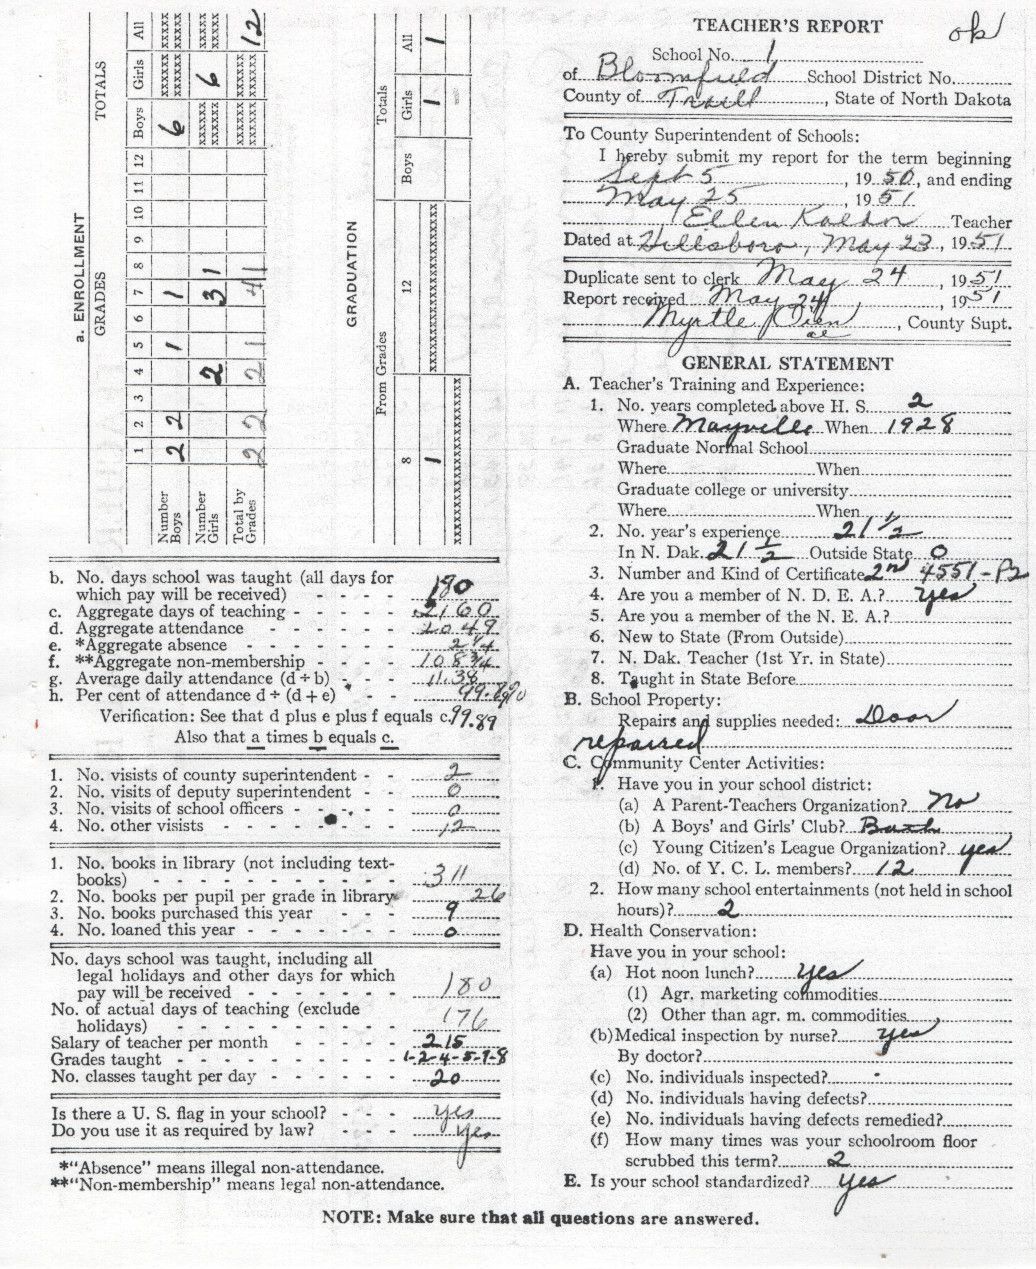 a. ENROLLMENT
GRADES TOTALS
1 2 3 4 5 6 7 8 9 10 11 12 Boys Girls All
Number Boys 2 2 1 1 6 xxxxx xxxxx
xxxxx xxxxx
Number Girls 2 3 1 xxxxx 6 xxxxx
xxxxx xxxxx
Total by Grades 2 2 2 1 4 1 xxxxx xxxxx 12
xxxxx xxxxx
GRADUATION
From Grades Totals
8 12 Boys Girls All
1 xxxxxxxxxxxxxxxxxxxxx 1 1
xxxxxxxxxxxxxxxxxxxxx
b. No. days school was taught (all days for
which pay will be received) - - - - 180
c. Aggregate days of teaching - - - - - 2160
d. Aggregate attendance - - - - - - 2049
e. *Aggregate absence - - - - - - 2 1/4
f. **Aggregate non-membership - - - - 108 3/4
g. Average daily attendance (d ÷ b) - - - 11.38
h. Per cent of attendance d ÷ (d + e) - - -
Verification: See that d plus e plus f equals c. 99.89
Also that a times b equals c.
1. No. visists of county superintendent - - 2
2. No. visits of deputy superintendent - - - 0
3. No. visits of school officers - - - - - 0
4. No. other visists - - - - - - - - 12
1. No. books in library (not including text-
books) - - - - - - - - - - 311
2. No. books per pupil per grade in library 26
3. No. books purchased this year - - - 9
4. No. loaned this year - - - - - - - 0
No. days school was taught, including all
legal holidays and other days for which
pay will be received - - - - - - - 180
No. of actual days of teaching (exclude
holidays) - - - - - - - - - 176
Salary of teacher per month - - - - - 215
Grades taught - - - - - - - - - 1-2-4-5-7-8
No. classes taught per day - - - - - 20
Is there a U. S. flag in your school? - - - yes
Do you use it as required by law? - - - yes
*"Absence" means illegal non-attendance.
**"Non-membership" means legal non-attendance.
TEACHER'S REPORT ok
School No. 1
of Bloomfield School District No.
County of Traill, State of North Dakota
To County Superintendent of Schools:
I hereby submit my report for the term beginning
Sept 5, 19 50, and ending
May 25, 19 51
Ellen Kaldor Teacher
Dated at Hillsboro, May 23, 19 51
Duplicate sent to clerk May 24, 19 51
Report received May 24, 19 51
Myrtle, County Supt.
GENERAL STATEMENT
A. Teacher's Training and Experience:
1. No. years completed above H. S. 2
Where Mayville When 1928
Graduate Normal School
Where When
Graduate college or university
Where When
2. No. year's experience 21 1/2
In N. Dak. 21 1/2 Outside State 0
3. Number and Kind of Certificate 2nd 4551-P2
4. Are you a member of N. D. E. A.? Yes
5. Are you a member of the N. E. A.?
6. New to State (From Outside)
7. N. Dak. Teacher (1st Yr. in State)
8. Taught in State Before
B. School Property:
Repairs and supplies needed: Door
repaired
C. Community Center Activities:
1. Have you in your school district:
(a) A Parent-Teachers Organization? No
(b) A Boys' and Girls' Club? Both
(c) Young Citizen's League Organization? yes
(d) No. of Y. C. L. members? 12
2. How many school entertainments (not held in school
hours)? 2
D. Health Conservation:
Have you in your school:
(a) Hot noon lunch? Yes
(1) Agr. marketing commodities
(2) Other than agr. m. commodities
(b) Medical inspection by nurse? yes
By doctor?
(c) No. individuals inspected?
(d) No. individuals having defects?
(e) No. individuals having defects remedied?
(f) How many times was your schoolroom floor
scrubbed this term? 2
E. Is your school standardized? Yes
NOTE: Make sure that all questions are answered.